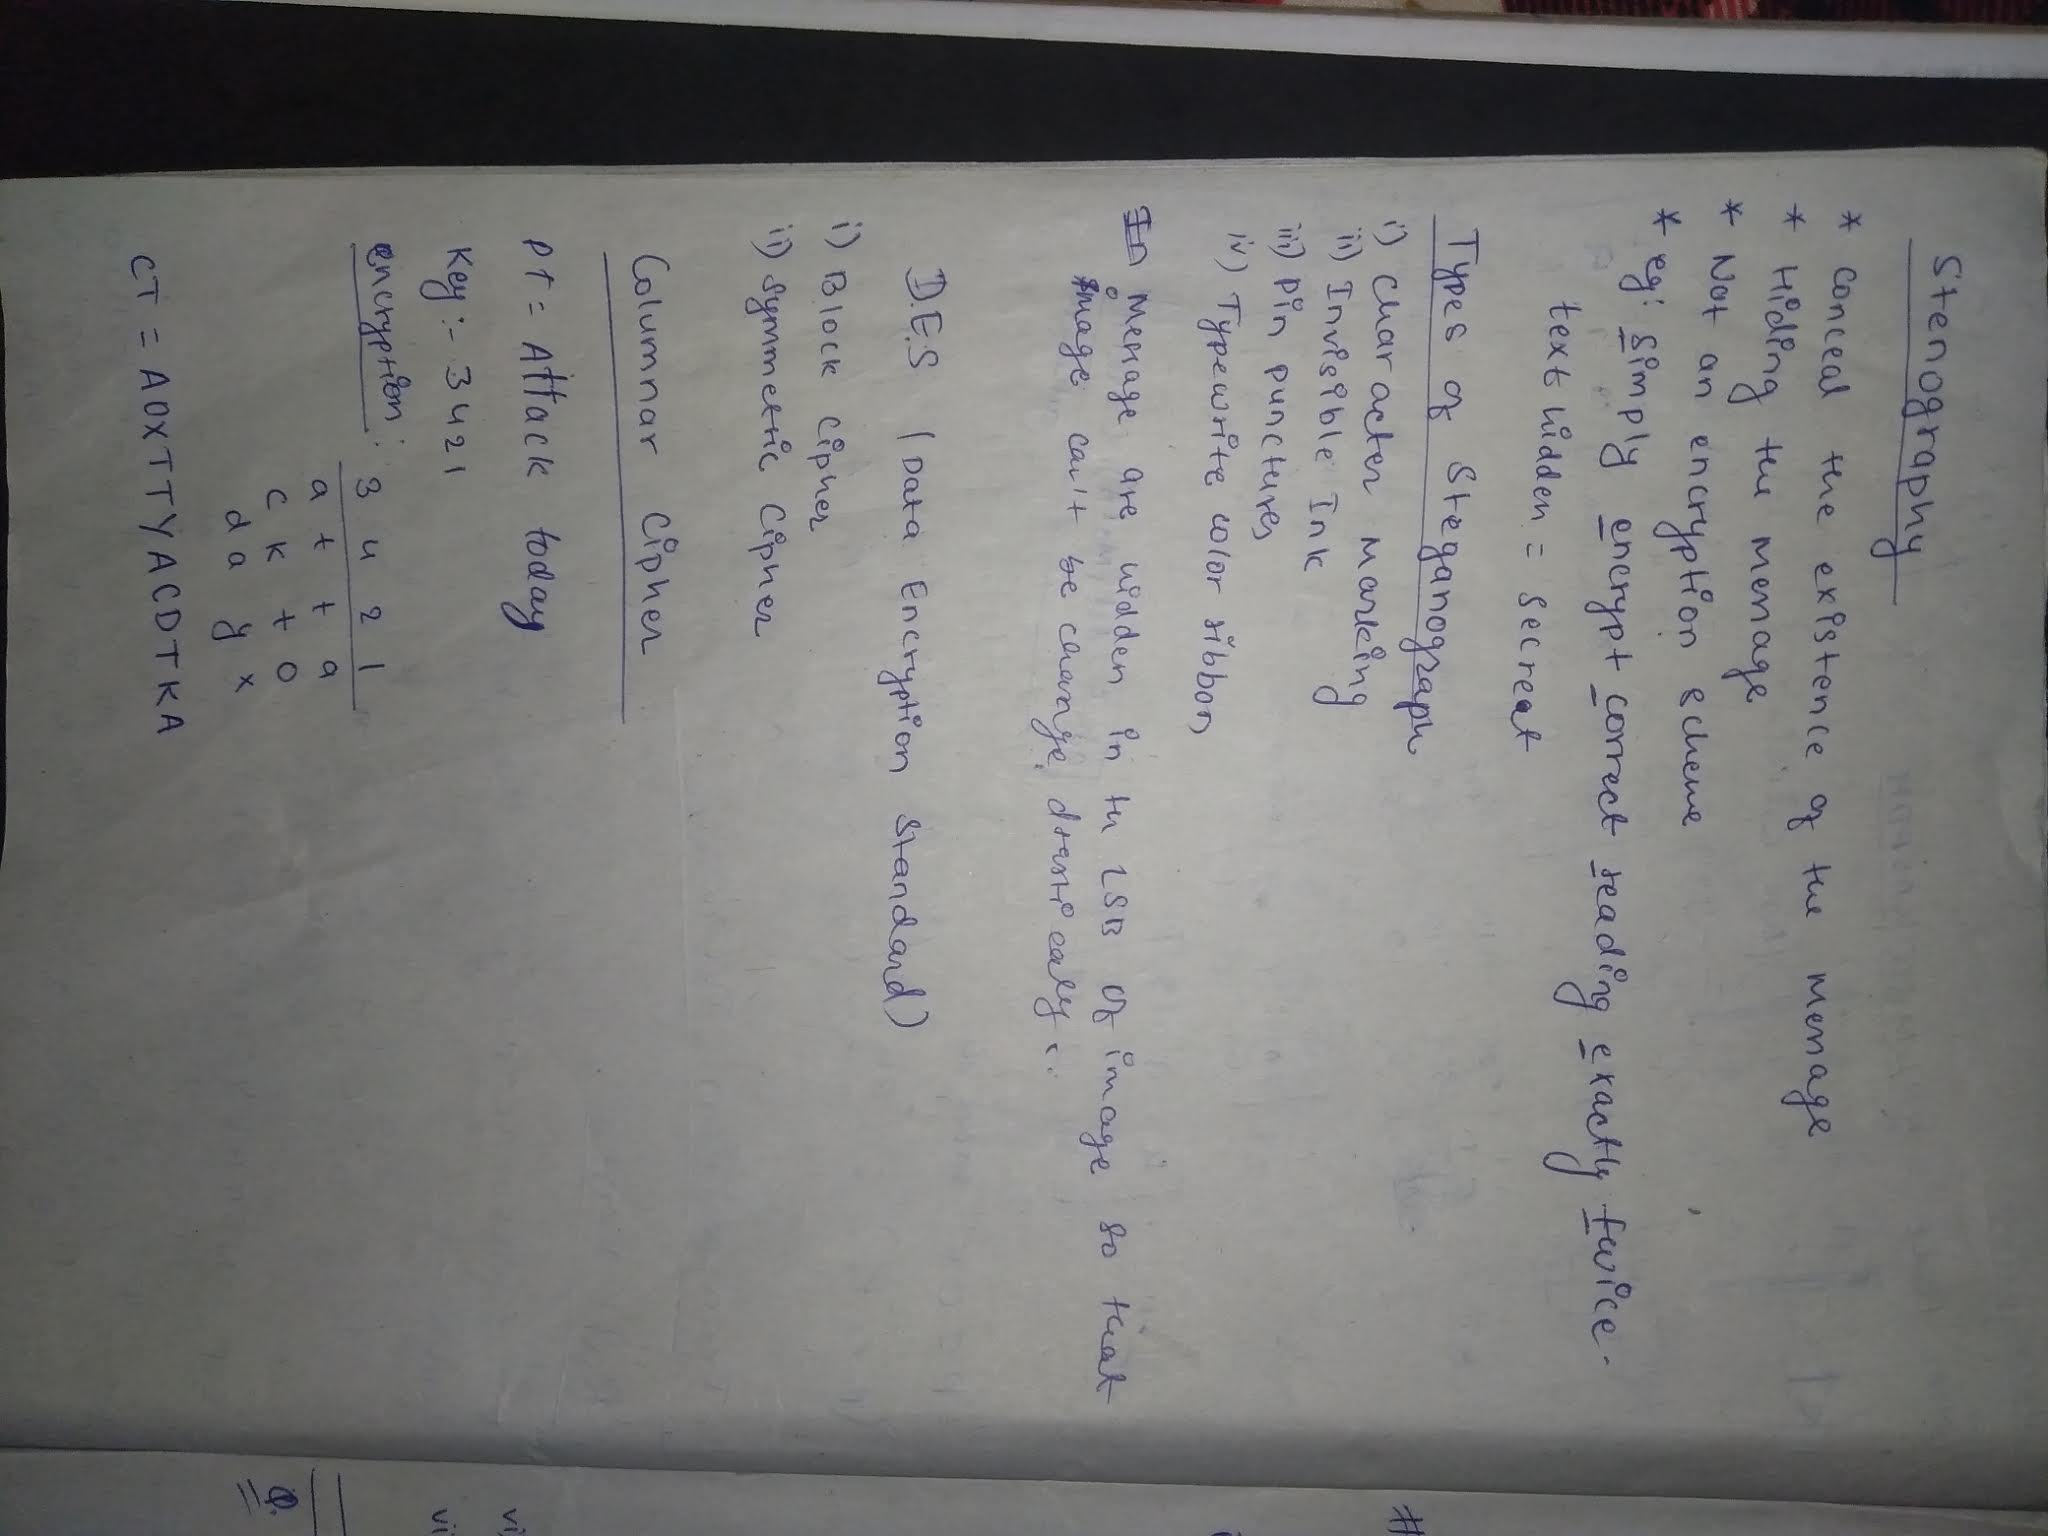 Stenography
* conceal the existence of the message
* Hiding the message
* Not an encryption scheme
* eg: simply encrypt correct reading exactly twice.
text hidden = secreat
Types of Steganograph
i) character marking
ii) Invisible Ink
iii) Pin punctures
iv) Typewrite color ribbon
In Message are hidden in th LSB of image so that
image can't be change drastically...
D.E.S (Data Encryption Standard)
i) Block cipher
ii) symmetric Cipher
Columnar Cipher
PT = Attack today
Key :- 3421
encryption:
3 4 2 1
a t t a
c k t o
d a y x
CT = AOXTTYACDTKA
#
vi)
vii
Q.